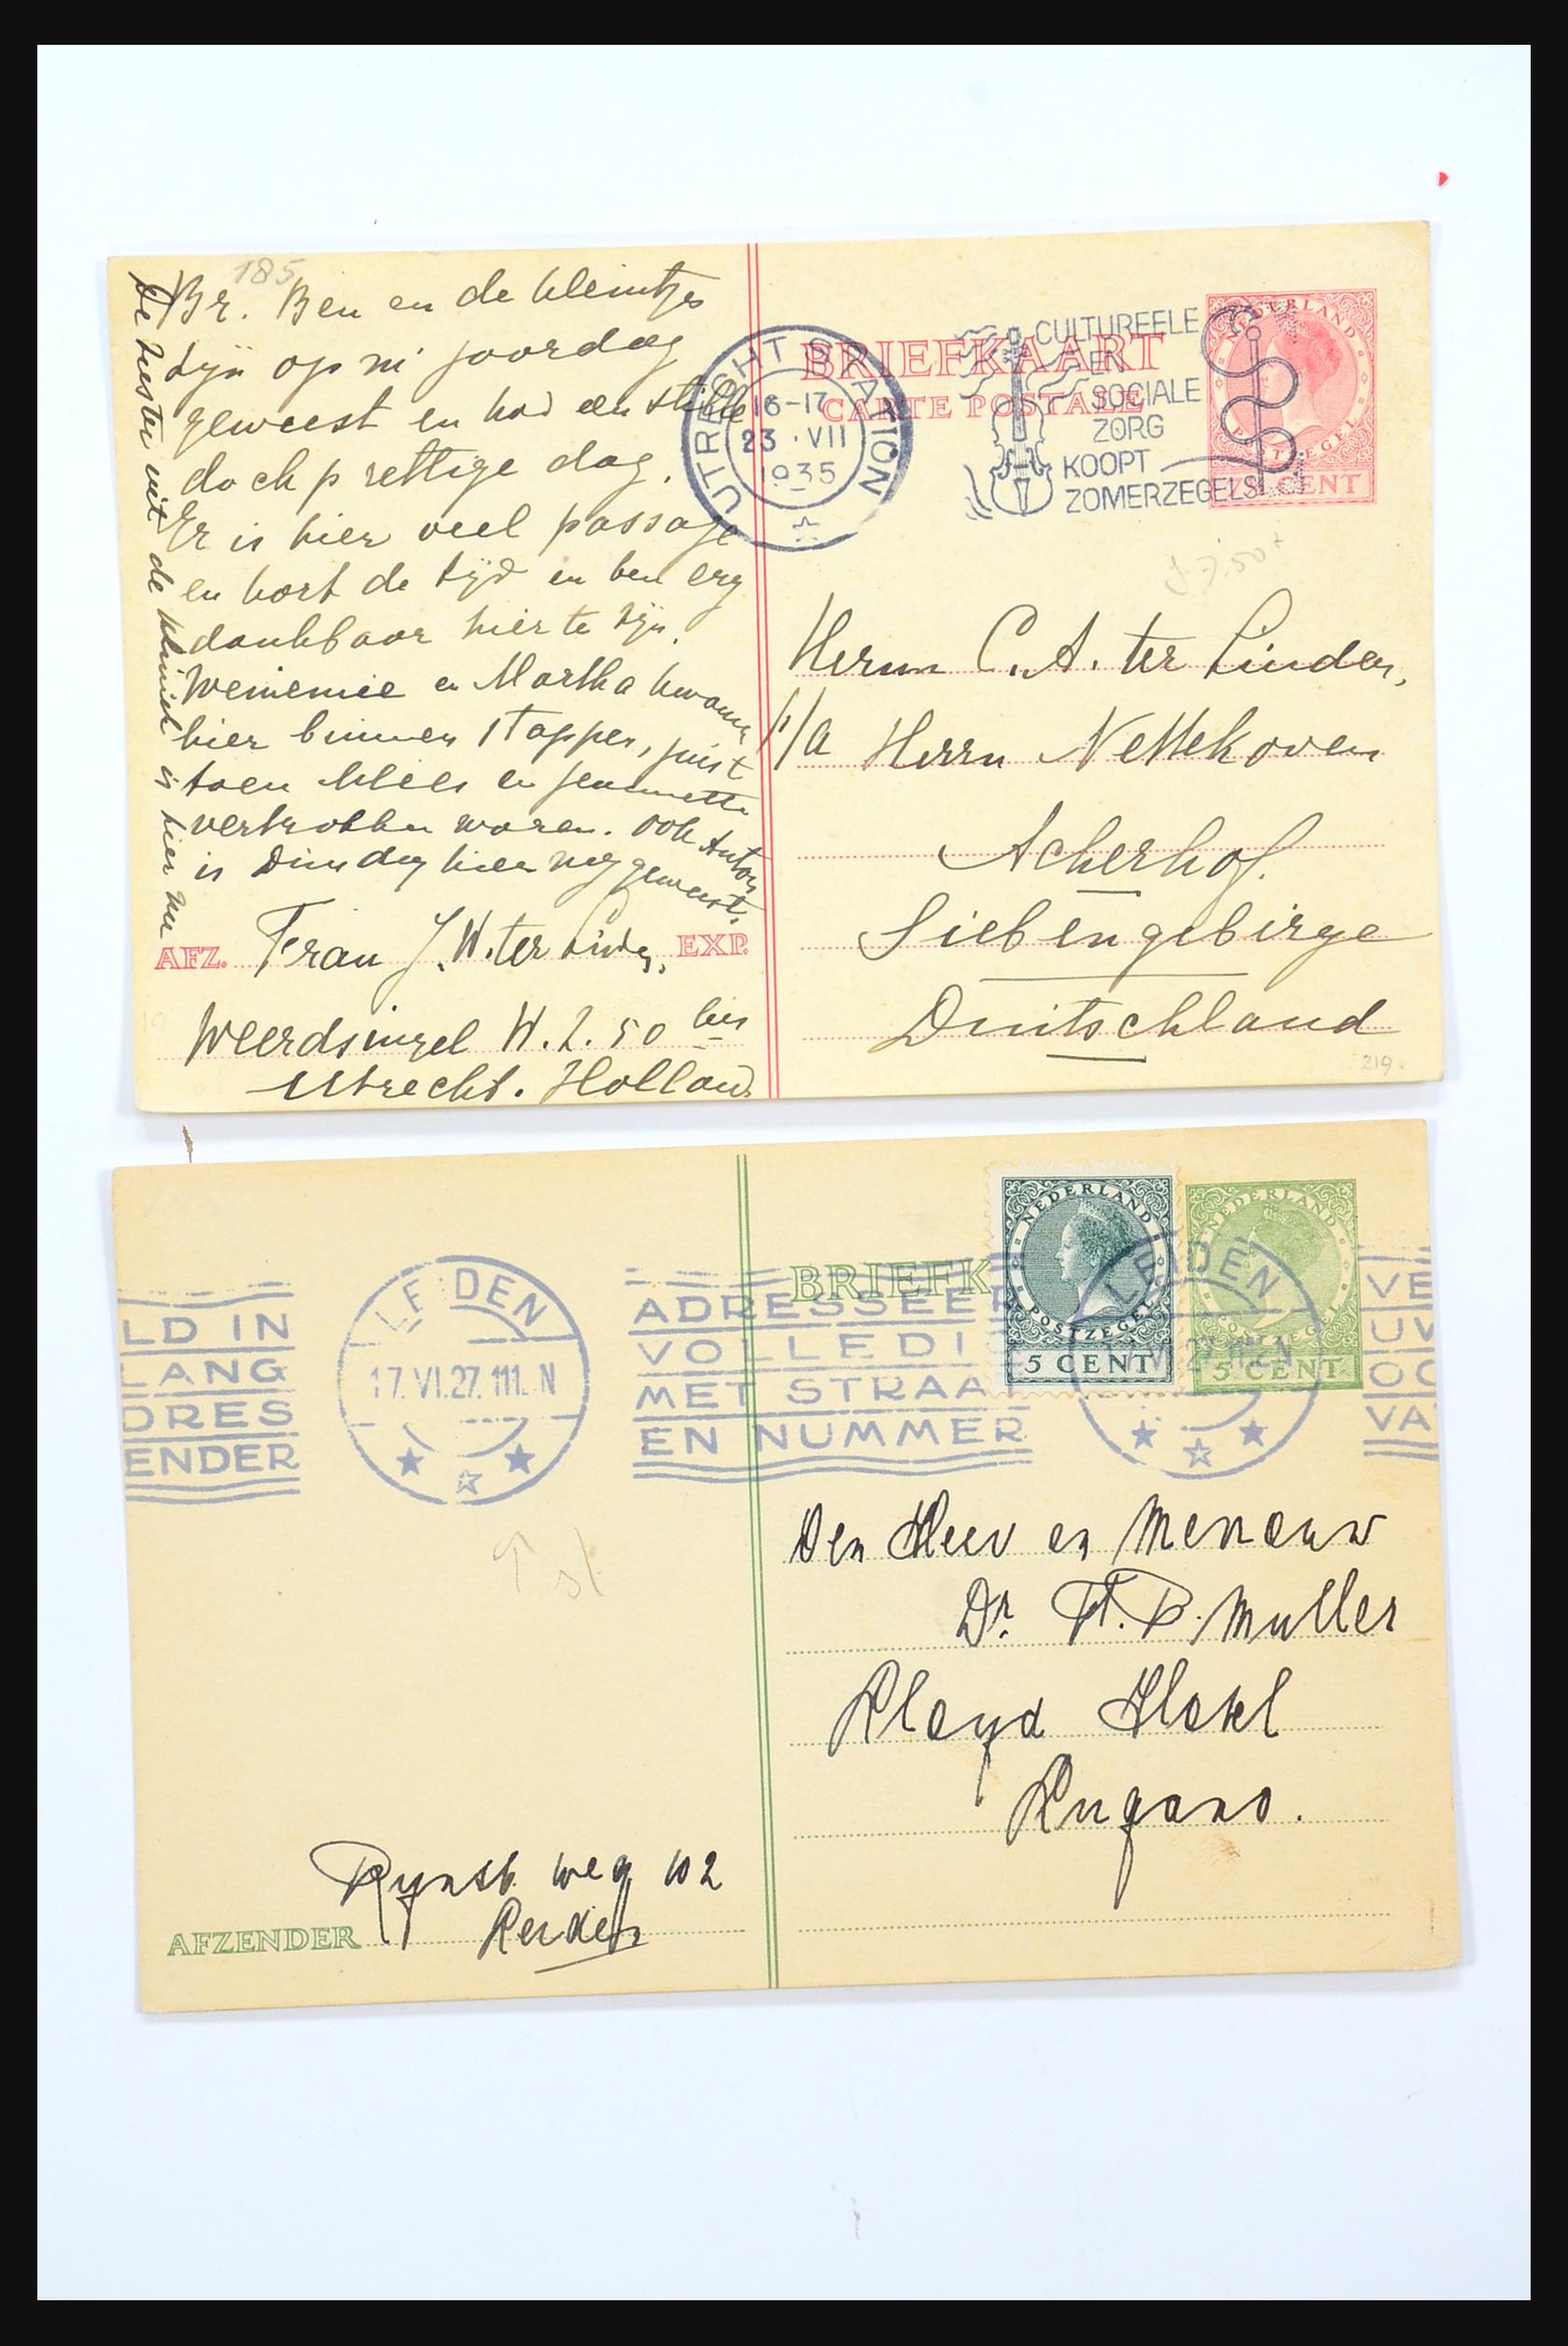 185
Br. Ben en de kleintjes
zijn op m' jaardag
geweest en had een stille
doch prettige dag.
Er is hier veel passage
en kort de tijd en ben erg
dankbaar hier te zijn.
en Martha kwamen
hier binnen stappen, juist
toen Klees en Jeannette
vertrokken waren. Ook Anton
is Dinsdag hier nog geweest.
De zuster uit de kliniek is hier nu
AFZ. Frau J. W. ter Linden, EXP.
Weerdsingel W. Z. 50 bis
Utrecht. Holland
UTRECHT STATION
16-17
23 · VII
1935
BRIEFKAART
CARTE POSTALE
CULTUREELE
EN
SOCIALE
ZORG
KOOPT
ZOMERZEGELS
NEDERLAND
POSTZEGEL
CENT
Herrn C. A. ter Linden,
p/a Herrn Nettekoven
Ackerhof.
Siebengebirge
Duitschland
219.
LD IN
LANG
DRES
ENDER
LEIDEN
17.VI.27. 111. N
ADRESSEER
VOLLEDI
MET STRAA
EN NUMMER
BRIEFK
NEDERLAND
POSTZEGEL
5 CENT
NEDERLAND
POSTZEGEL
5 CENT
LEIDEN
VE
UW
OO
VA
Den Heer en Mevrouw
Dr. F. P. Muller
Lloyd Hotel
Lugano.
Rynsb. weg 102
AFZENDER Leiden